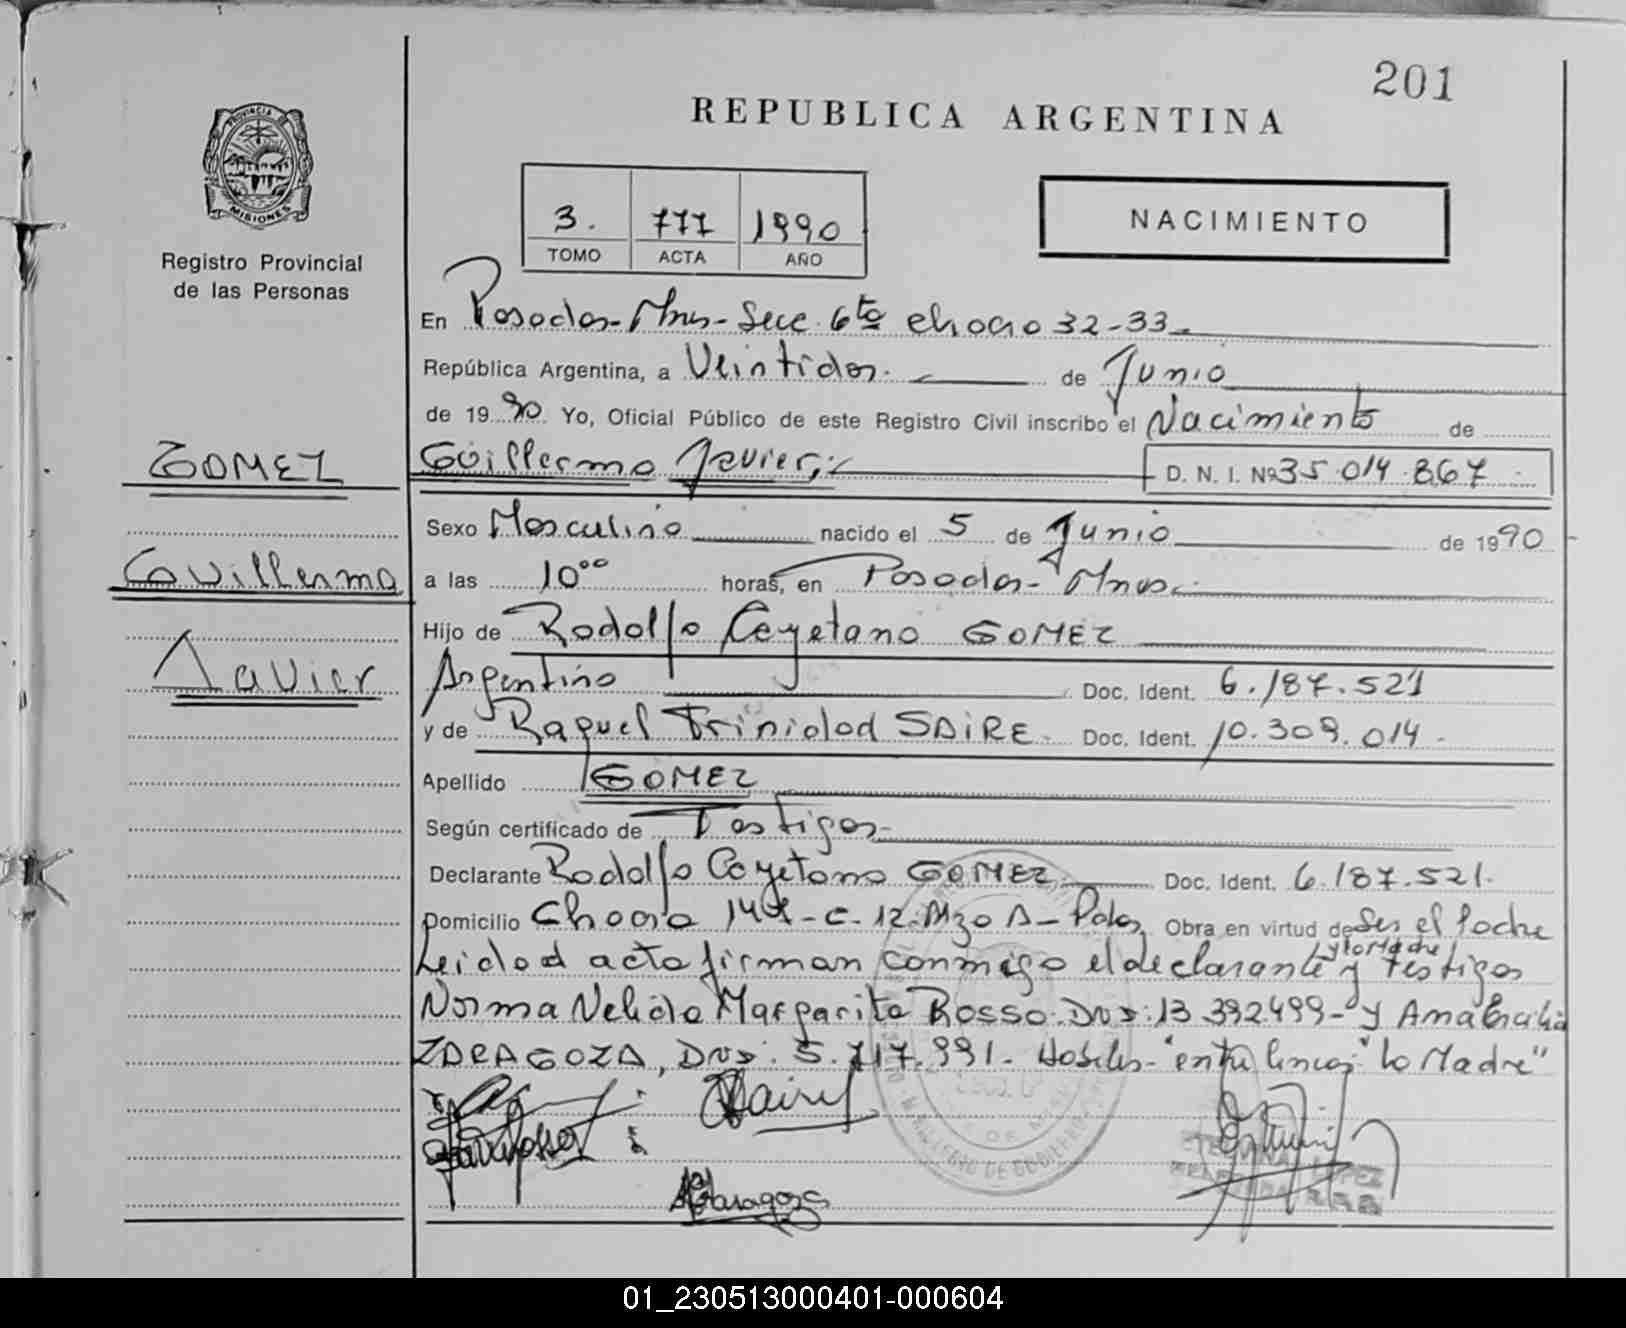 201
REPUBLICA ARGENTINA
PROVINCIA DE
MISIONES
Registro Provincial
de las Personas
3. 777 1990
TOMO ACTA AÑO
NACIMIENTO
En Posadas-Mnes-Secc. 6ta chacra 32-33
República Argentina, a Veintidos. de Junio
de 1990 Yo, Oficial Público de este Registro Civil inscribo el Nacimiento de
GOMEZ
Guillermo Javier D. N. I. Nº 35.014.867
Sexo Masculino nacido el 5 de Junio de 1990
Guillermo
a las 10°° horas, en Posadas-Mnes.
Hijo de Rodolfo Cayetano GOMEZ
Javier
Argentino Doc. Ident. 6.187.521
y de Raquel Trinidad SAIRE Doc. Ident. 10.309.014
Apellido GOMEZ
Según certificado de Testigos
Declarante Rodolfo Cayetano GOMEZ Doc. Ident. 6.187.521.
Domicilio Chacra 149-C-12-Mzo A-Pdas Obra en virtud de Ser el Padre
Leida el acta firman conmigo el declarante y la Madre y testigos
Norma Nelida Margarita Rosso. DNI: 13 392499- y Ana
ZARAGOZA, DNI: 5.717.991- Habiles- "entre lineas" la Madre"
Saire
Zaragoza
01_230513000401-000604